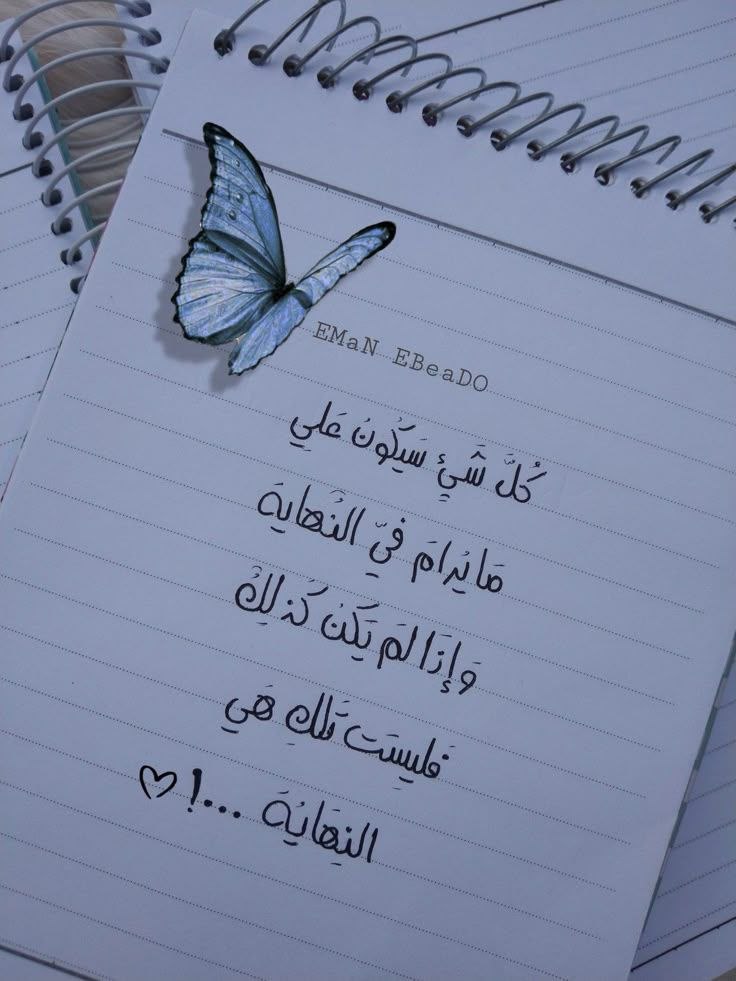 EMaN EBeaDO
كُلَّ شَيٍء سَيَكُونُ عَلي
مَا يُرامَ فيّ النُهايةَ
وَإذَا لَم يَكُنْ كَذلِكَ
فَليسَت تَلكِ هَي
النِهَايُةَ ...! ♡